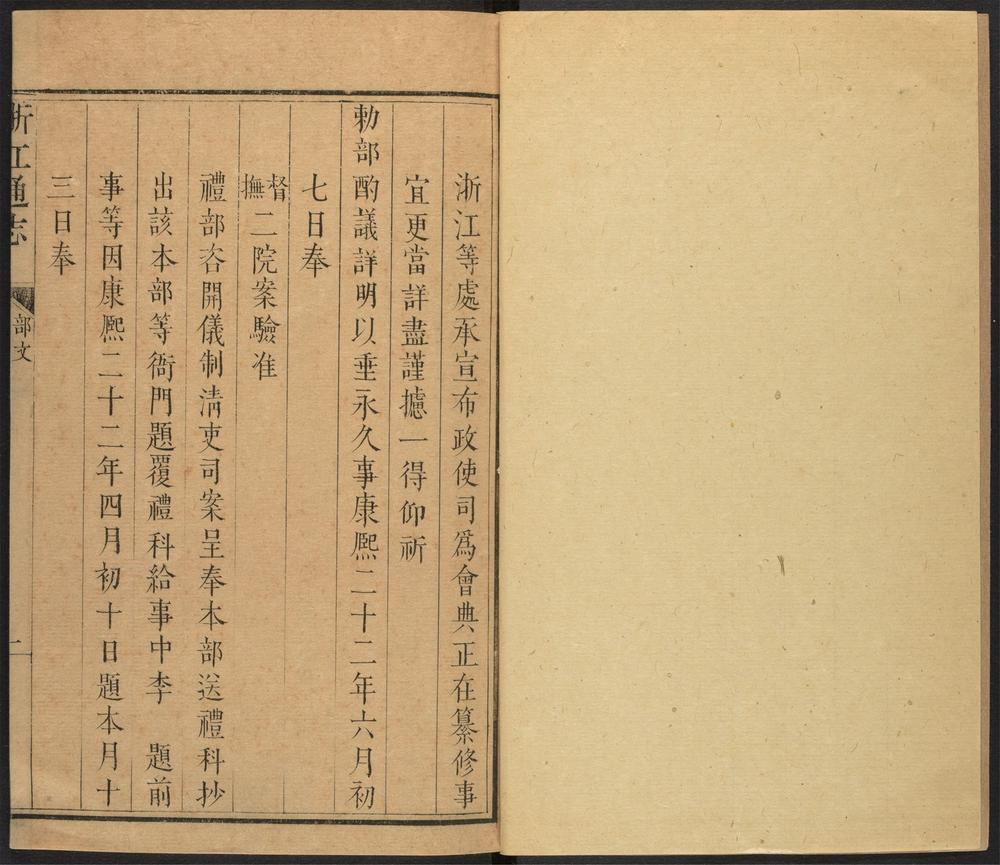 浙江等處承宣布政使司爲會典正在纂修事
宜更當詳盡謹攄一得仰祈
勅部酌議詳明以垂永久事康熙二十二年六月初
七日奉
督撫二院案驗准
禮部咨開儀制清吏司案呈奉本部送禮科抄
出該本部等衙門題覆禮科給事中李 題前
事等因康熙二十二年四月初十日題本月十
三日奉
浙江通志 部文 二